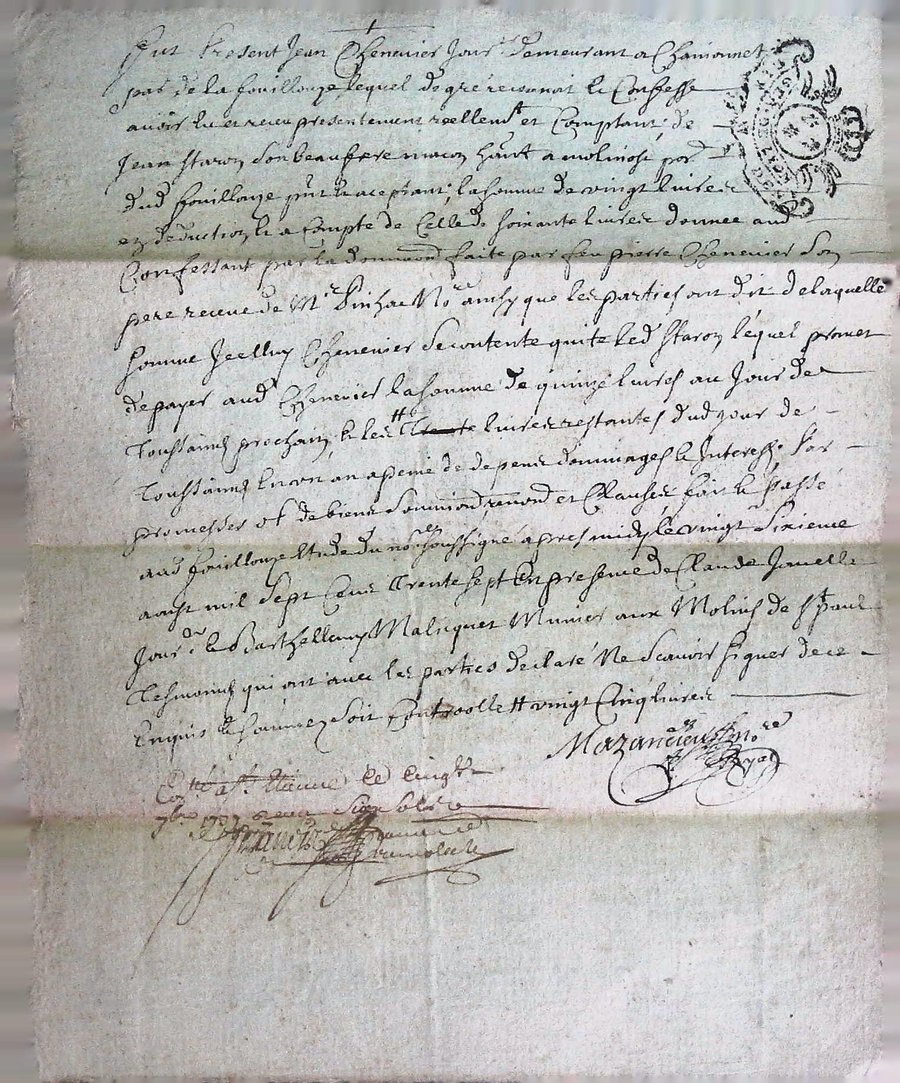 Fut present Jean Chenevier Jour.r demeurant a Chamonnet
par de la fouillouze lequel de gré reconoit & Confesse
avoir eu et receu presentement reellem.t et Comptant, de
Jean Staron son beaufrere macon hant a molinost par
dud fouillouze pnt & aceptant, la somme de vingt livres
en deduction & a Compte de Celle de soixante livres donnée aud
Confessant par la faite par feu pierre Chenevier son
pere receue de M.r No.re ainsy que les parties ont dit de laquelle
somme Jcelluy Chenevier se contente quite led Staron lequel promet
de payer aud Chenevier la somme de quinze livres au Jour de
Toussaint prochain, & les livres restantes dud jour de
Toussaint en un an a peine de depens dommages & Interests par
promesses ob de biens soumiond renond et Clauses fait & passé
aud fouillouze Etude du no.re soussigné apres midy le vingt sixieme
aoust mil sept Cent trente sept En presence de Claude Jouvelle
Jour.r & Barthellemy Malicquet Munier aux Molins de S.t paul
Tesmoins qui ont avec les parties declaré Ne Scavoir signer de ce
Enquis & sommez soit Controollé vingt Cinq livres
No.re
Royal
Con.lé a S.t Etienne le cinq
7bre 1737 Six sols